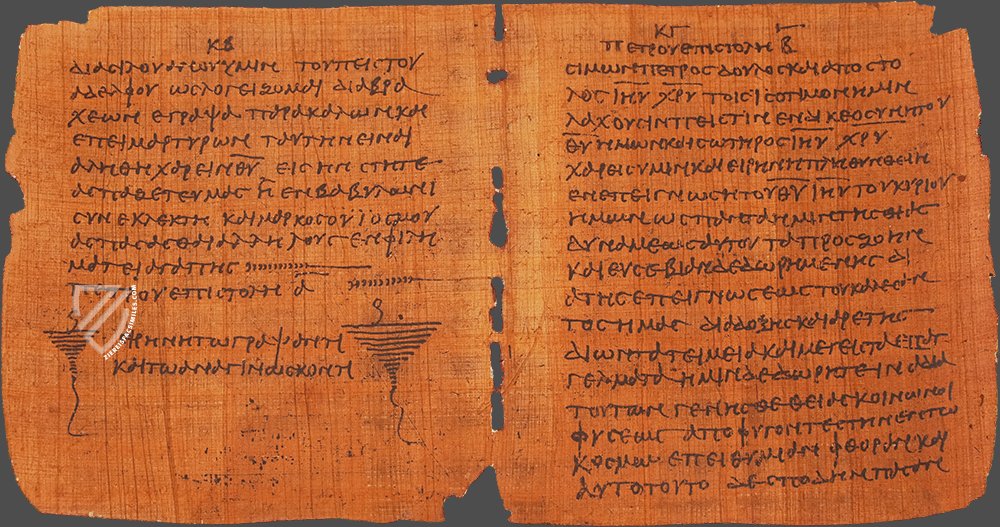 ΚΒ
ΔΙΑ ϹΙΛΟΥΑΝΟΥ ΥΜΙΝ ΤΟΥ ΠΕΙϹΤΟΥ
ΑΔΕΛΦΟΥ ΩϹ ΛΟΓΕΙΖΟΜΑΙ ΔΙΑ ΒΡΑ
ΧΕΩΝ ΕΓΡΑΨΑ ΠΑΡΑΚΑΛΩΝ ΚΑΙ
ΕΠΕΙΜΑΡΤΥΡΩΝ ΤΑΥΤΗΝ ΕΙΝΑΙ
ΑΛΗΘΗ ΧΑΡΕΙΝ ΘΥ ΕΙϹ ΗΝ ϹΤΗΤΕ
ΑϹΠΑΖΕΤΕ ΥΜΑϹ Η ΕΝ ΒΑΒΥΛΩΝΙ
ϹΥΝΕΚΛΕΚΤΗ ΚΑΙ ΜΑΡΚΟϹ Ο ΥΙΟϹ ΜΟΥ
ΑϹΠΑϹΑϹΘΑΙ ΑΛΛΗΛΟΥϹ ΕΝ ΦΙΛΗ
ΜΑΤΕΙ ΑΓΑΠΗϹ
ΟΥ ΕΠΙϹΤΟΛΗ Α
ΡΗΝΗ ΤΩ ΓΡΑΨΑΝΤΙ
ΚΑΙ ΤΩ ΑΝΑΓΙΝΩϹΚΟΝΤΙ
ΚΓ
ΠΕΤΡΟΥ ΕΠΙϹΤΟΛΗ Β
ϹΙΜΩΝ ΠΕΤΡΟϹ ΔΟΥΛΟϹ ΚΑΙ ΑΠΟϹΤΟ
ΛΟϹ ΙΗΥ ΧΡΥ ΤΟΙϹ ΙϹΟΤΙΜΟΝ ΗΜΙΝ
ΛΑΧΟΥϹΙΝ ΠΕΙϹΤΙΝ ΕΝ ΔΙΚΕΟϹΥΝΗ ΤΟΥ
ΘΥ ΗΜΩΝ ΚΑΙ ϹΩΤΗΡΟϹ ΙΗΥ ΧΡΥ
ΧΑΡΕΙϹ ΥΜΙΝ ΚΑΙ ΕΙΡΗΝΗ ΠΛΗΘΥΝΘΕΙΗ
ΕΝ ΕΠΕΙΓΝΩϹΗ ΤΟΥ ΘΥ ΙΗΥ ΤΟΥ ΚΥΡΙΟΥ
ΗΜΩΝ ΩϹ ΠΑΝΤΑ ΗΜΙΝ ΤΗϹ ΘΕΙΑϹ
ΔΥΝΑΜΕΩϹ ΑΥΤΟΥ ΤΑ ΠΡΟϹ ΖΩΗΝ
ΚΑΙ ΕΥϹΕΒΙΑΝ ΔΕΔΩΡΗΜΕΝΗϹ ΔΙ
Α ΤΗϹ ΕΠΕΙΓΝΩϹΕΩϹ ΤΟΥ ΚΑΛΕϹΑΝ
ΤΟϹ ΗΜΑϹ ΔΙΑ ΔΟΞΗϹ ΚΑΙ ΑΡΕΤΗϹ
ΔΙ ΩΝ ΤΑ ΤΕΙΜΕΙΑ ΚΑΙ ΜΕΓΕΙϹΤΑ ΕΠΑΓ
ΓΕΛΜΑΤΑ ΗΜΙΝ ΔΕΔΩΡΗΤΕ ΙΝΑ ΔΙΑ
ΤΟΥΤΩΝ ΓΕΝΗϹΘΕ ΘΕΙΑϹ ΚΟΙΝΩΝΟΙ
ΦΥϹΕΩϹ ΑΠΟΦΥΓΟΝΤΕϹ ΤΗΝ ΕΝ ΤΩ
ΚΟϹΜΩ ΕΠΕΙΘΥΜΙΑΝ ΦΘΟΡΑΝ ΚΑΙ
ΑΥΤΟ ΤΟΥΤΟ ΔΕ ϹΠΟΔΗΝ ΠΑϹΑΝ
ZIEREIS FACSIMILES.COM